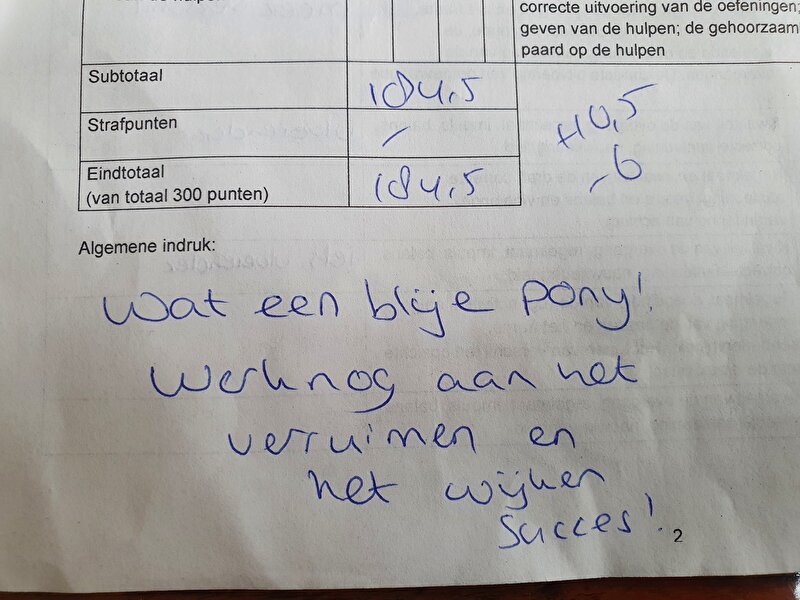 correcte uitvoering van de oefeningen;
geven van de hulpen; de gehoorzaam
paard op de hulpen
Subtotaal 184,5
Strafpunten -
Eindtotaal
(van totaal 300 punten) 184,5
-6
Algemene indruk:
Wat een blije pony!
Werk nog aan het
verruimen en
het wijken
succes!
2